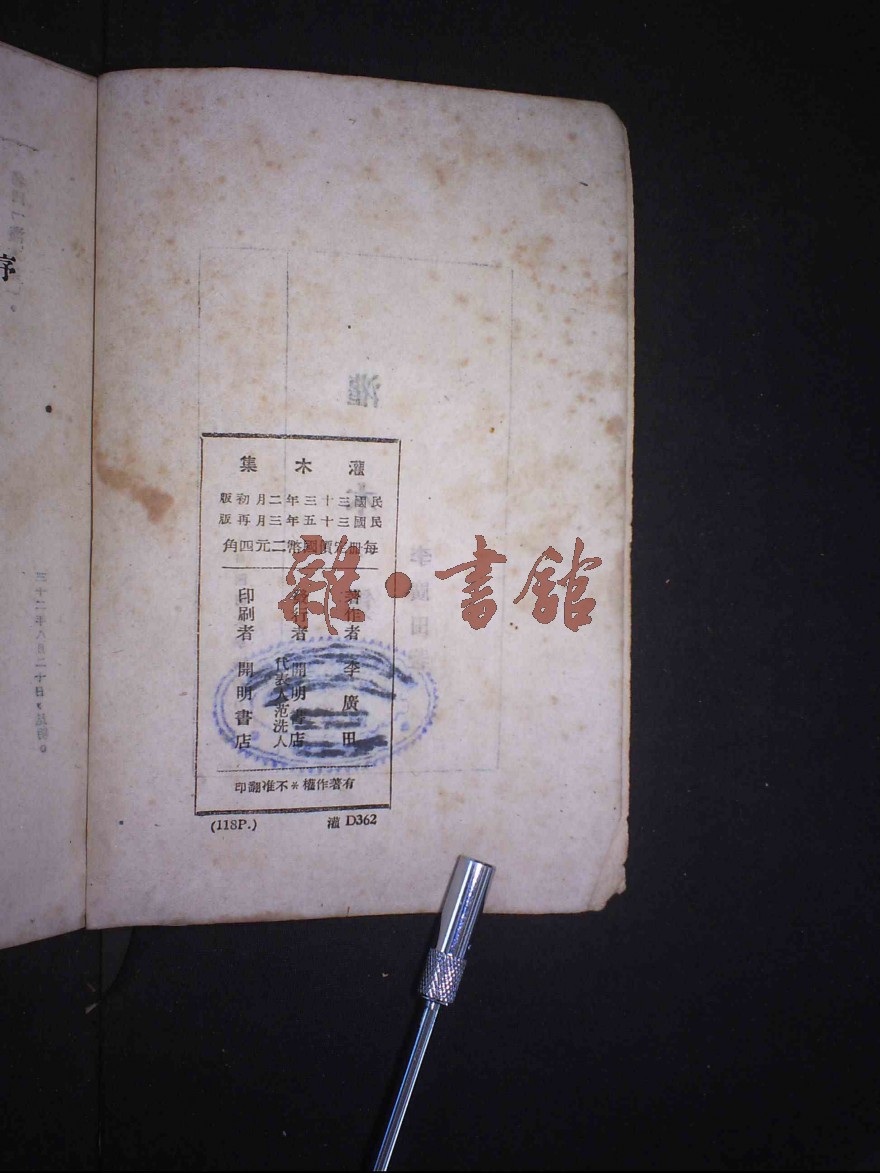 灌木集
民國三十三年二月初版
民國三十五年三月再版
每冊定價國幣二元四角
著作者 李廣田
發行者 開明書店
代表人范洗人
印刷者 開明書店
有著作權*不准翻印
(118P.) 灌 D362
雜·書館
序
三十二年八月二十日,昆明。